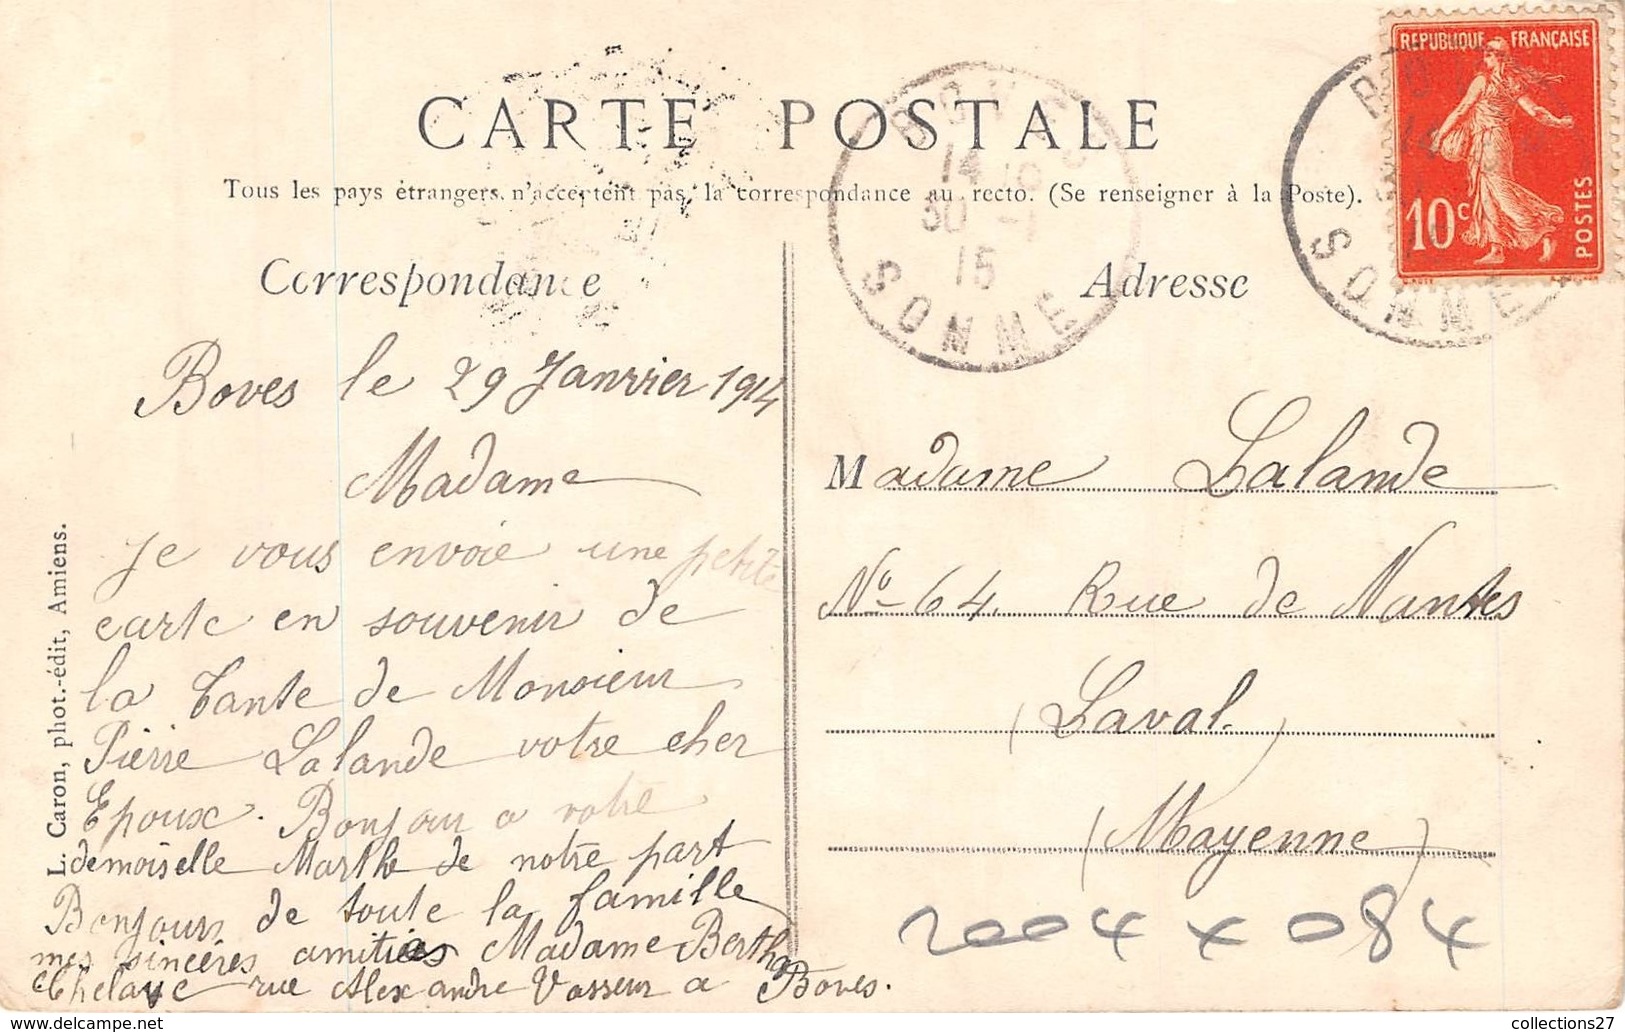 CARTE POSTALE
Tous les pays étrangers n'acceptent pas la correspondance au recto. (Se renseigner à la Poste).
Correspondance
Adresse
REPUBLIQUE FRANÇAISE
10c
POSTES
BOVES
14
30 -1
15
SOMME
SOMME
Boves le 29 Janvier 1914
Madame
Je vous envoie une petite
carte en souvenir de
la tante de Monsieur
Pierre Lalande votre cher
Epoux. Bonjour a votre
demoiselle Marthe de notre part
Bonjours de toute la famille
mes sincères amitiées Madame Bertha
rue Alexandre Vasseur a Boves.
Madame Lalande
No 64 Rue de Nantes
(Laval.)
(Mayenne)
2004 x 084
L. Caron, phot.-édit, Amiens.
collections27